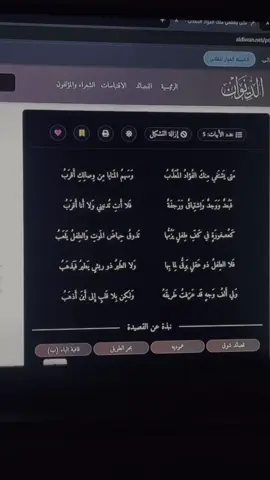 aldiwan.net/po
الديوان
الرئيسية القصائد الاقتباسات الشعراء والمؤلفون
عدد الأبيات: 5
إزالة التشكيل
مَتى يَشتَفي مِنكَ الفُؤادُ المُعَذَّبُ وَسَهمُ المَنايا مِن وِصالِكِ أَقرَبُ
فَبُعدٌ وَوَجدٌ وَاِشتِياقٌ وَرَجفَةٌ فَلا أَنتِ تُدنيني وَلا أَنا أَقرَبُ
كَعُصفورَةٍ في كَفِّ طِفلٍ يَزُمُّها تَذوقُ حِياضَ المَوتِ وَالطِفلُ يَلعَبُ
فَلا الطِفلُ ذو عَقلٍ يَرِقُّ لِما بِها وَلا الطَيرُ ذو ريشٍ يَطيرُ فَيَذهَبُ
وَلي أَلفُ وَجهٍ قَد عَرَفتُ طَريقَهُ وَلَكِن بِلا قَلبٍ إِلى أَينَ أَذهَبُ
نبذة عن القصيدة
قصائد شوق
عموديه
بحر الطويل
قافية الباء (ب)